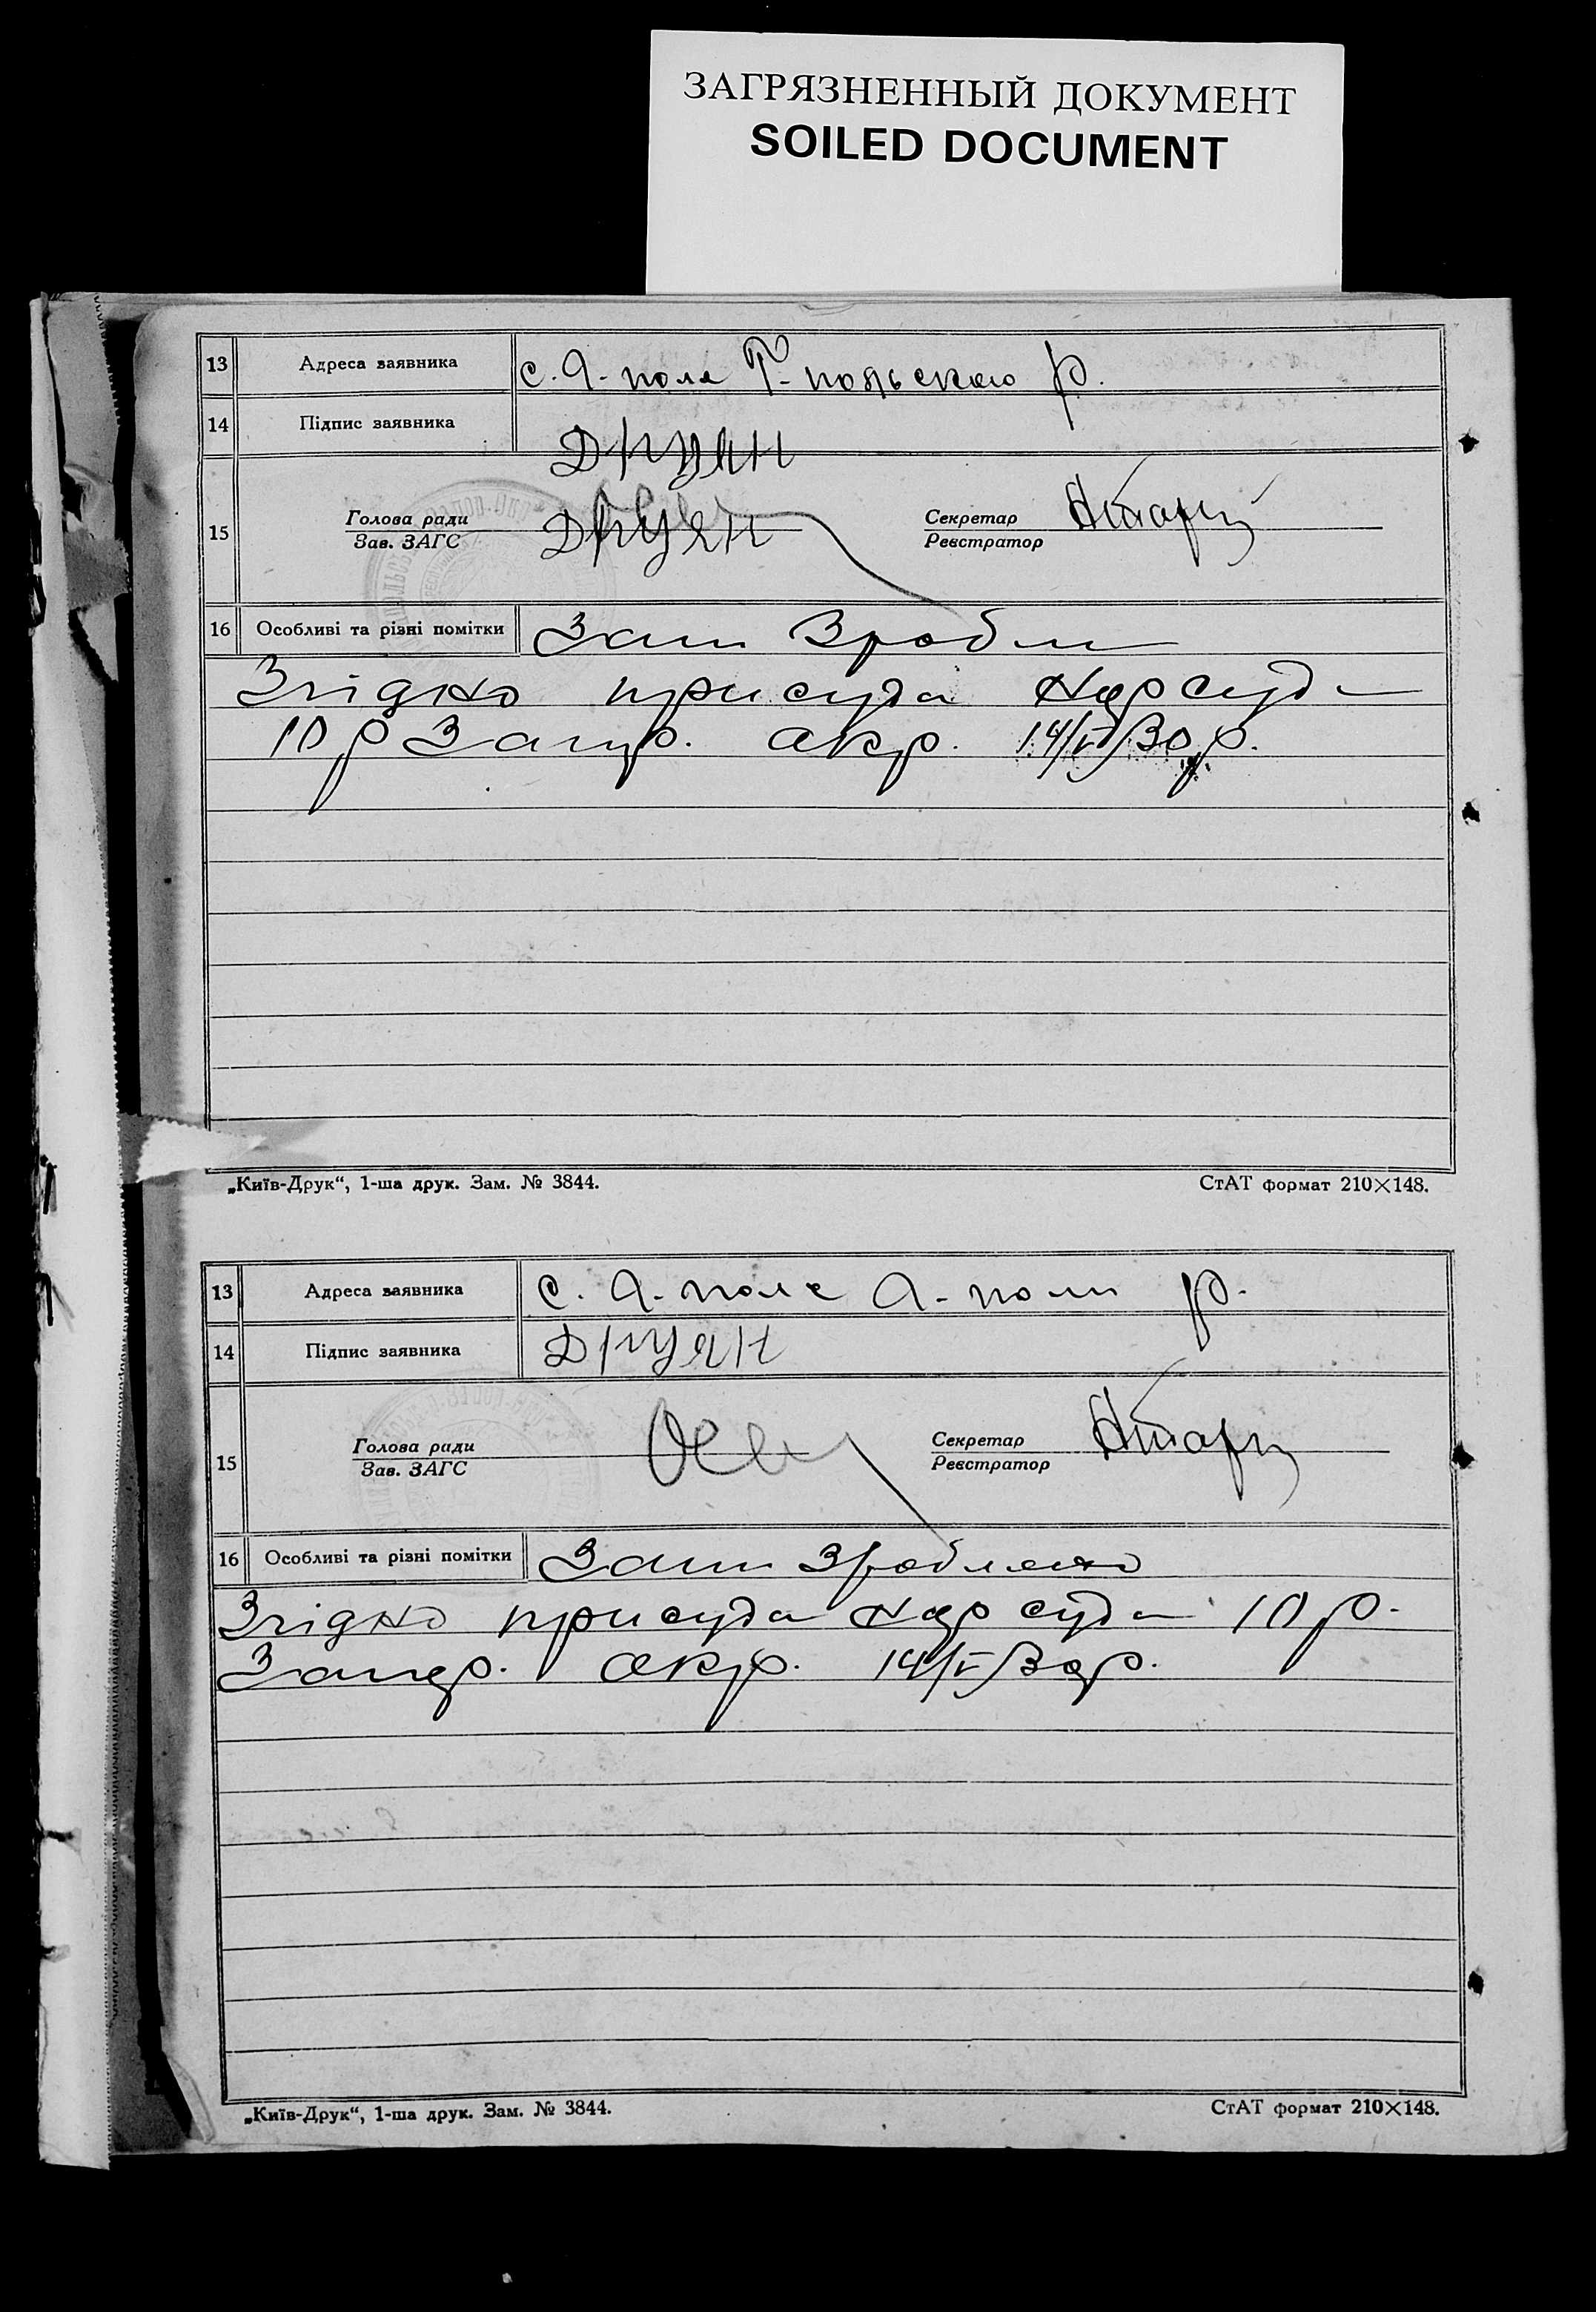 ЗАГРЯЗНЕННЫЙ ДОКУМЕНТ
SOILED DOCUMENT
13 Адреса заявника с. Я-поля Г-польского р.
14 Підпис заявника
15 Голова ради Секретар
Зав. ЗАГС Реєстратор
16 Особливі та різні помітки Зап. Зробл
Згідно присуда Нарсуда
10 р Запор. окр. 14/V/30 р.
„Київ-Друк“, 1-ша друк. Зам. № 3844. СтАТ формат 210×148.
13 Адреса заявника с. Я-поле Я-поли р.
14 Підпис заявника
15 Голова ради Секретар
Зав. ЗАГС Реєстратор
16 Особливі та різні помітки Зап. Зроблено
Згідно присуда Нар суда 10 р.
Запор. окр. 14/V/30 р.
„Київ-Друк“, 1-ша друк. Зам. № 3844. СтАТ формат 210×148.